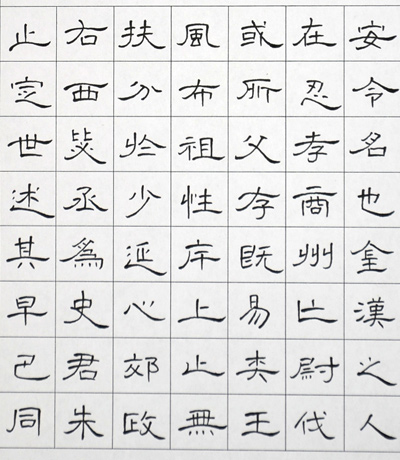 安令名也金漢之人
在忍孝商州尉代
或所父存既易王
風布祖性上止無
扶分少延心郊政
右西丞為史君朱
止定世述其早己同